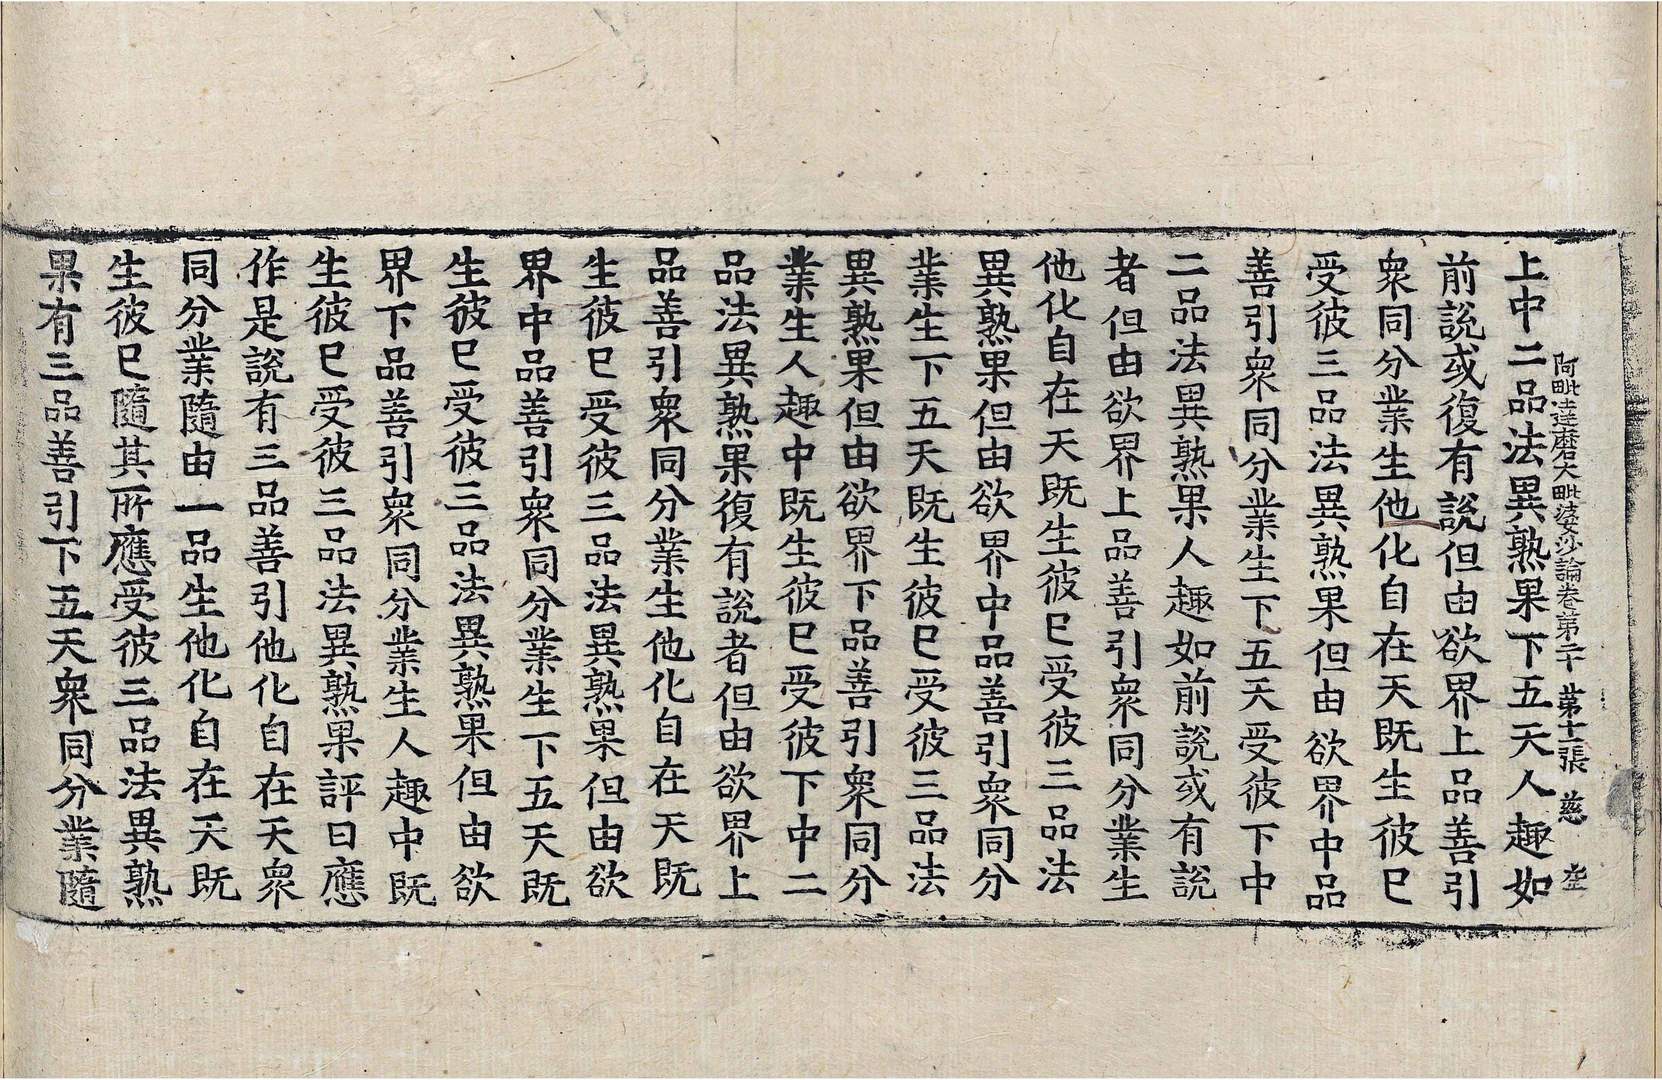 阿毗達磨大毗婆沙論卷第二十 第十一張 慈
上中二品法異熟果下五天人趣如
前說或復有說但由欲界上品善引
衆同分業生他化自在天既生彼已
受彼三品法異熟果但由欲界中品
善引衆同分業生下五天受彼下中
二品法異熟果人趣如前說或有說
者但由欲界上品善引衆同分業生
他化自在天既生彼已受彼三品法
異熟果但由欲界中品善引衆同分
業生下五天既生彼已受彼三品法
異熟果但由欲界下品善引衆同分
業生人趣中既生彼已受彼下中二
品法異熟果復有說者但由欲界上
品善引衆同分業生他化自在天既
生彼已受彼三品法異熟果但由欲
界中品善引衆同分業生下五天既
生彼已受彼三品法異熟果但由欲
界下品善引衆同分業生人趣中既
生彼已受彼三品法異熟果評曰應
作是說有三品善引他化自在天衆
同分業隨由一品生他化自在天既
生彼已隨其所應受彼三品法異熟
果有三品善引下五天衆同分業隨